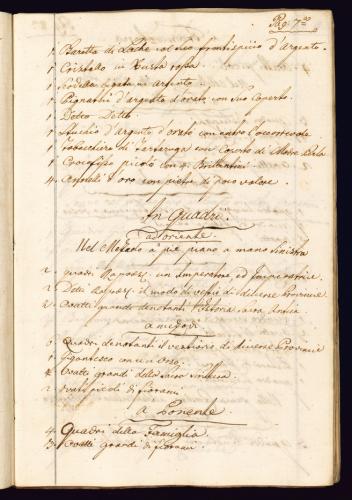 Pag: 7.
1 di Lache col suo frontispizio d'Argento.
1 Cristallo in Busta rossa
1 legata in argento.
1 Pignachi d'argento d'orato con suo Coperto.
1 Detto Detto.
1 Stuchio d'Argento d'orato con entro l'occorrevole
1 Tabacchiera di Tartaruga con Coperto di Madre Perla
1 Crocefisso picolo con 4. Brillantini
4. Annelli d'oro con pietre di poco valore.
In Quadri.
ad oriente.
Nel Mezado à piè piano a mano sinistra
2. quadri Rappres: un Imperatore ed Imperatrice.
2. Detti Rappres: il modo di vestire di diverse Provincie
2. Ovatti grandi denotanti l'Istoria sacra Antica
a mezodì
6 Quadri denotanti il vestiario di diverse Provincie
1 Gigantesco con un Orso.
2 Ovatti grandi della Sacra Scrittura.
2 ovati picoli di fiorami.
a Ponente
4. Quadri della Famiglia.
3. Ovatti grandi di fiorami.